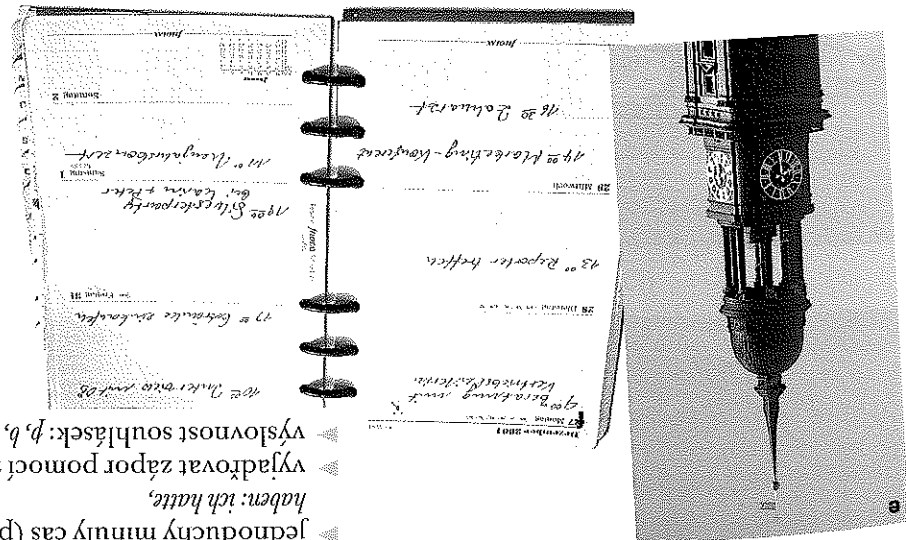 jednoduchý minulý čas (p
haben: ich hatte,
vyjadřovat zápor pomocí
výslovnost souhlásek: p, b,
e
Dezember 2001
27 Montag
9.00 Beratung mit
Vertriebsleiterin
28 Dienstag
13.00 Reporter treffen
29 Mittwoch
14.00 Marketing-Konferenz
16.30 Zahnarzt
10.00 Interview mit
17.00 Getränke einkaufen
Freitag 31
19.00 Silvesterparty
bei Karin + Peter
Samstag 1
11.00 Neujahrskonzert
Sonntag 2